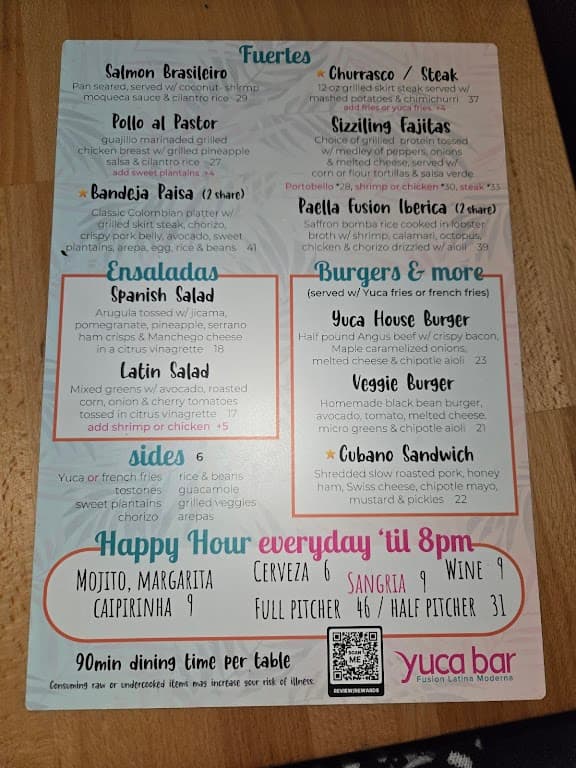 Fuertes
Salmon Brasileiro
Pan seared, served w/ coconut- shrimp
moqueca sauce & cilantro rice 29
Pollo al Pastor
guajillo marinaded grilled
chicken breast w/ grilled pineapple
salsa & cilantro rice 27
add sweet plantains +4
Bandeja Paisa (2 share)
Classic Colombian platter w/
grilled skirt steak, chorizo,
crispy pork belly, avocado, sweet
plantains, arepa, egg, rice & beans 41
Churrasco / Steak
12 oz grilled skirt steak served w/
mashed potatoes & chimichurri 37
add fries or yuca fries +4
Sizziling Fajitas
Choice of grilled protein tossed
w/ medley of peppers, onions
& melted cheese, served w/
corn or flour tortillas & salsa verde
Portobello *28, shrimp or chicken *30, steak *33
Paella Fusion Iberica (2 share)
Saffron bomba rice cooked in lobster
broth w/ shrimp, calamari, octopus,
chicken & chorizo drizzled w/ aioli 39
Ensaladas
Spanish Salad
Arugula tossed w/ jicama,
pomegranate, pineapple, serrano
ham crisps & Manchego cheese
in a citrus vinagrette 18
Latin Salad
Mixed greens w/ avocado, roasted
corn, onion & cherry tomatoes
tossed in citrus vinagrette 17
add shrimp or chicken +5
sides 6
Yuca or french fries
tostones
sweet plantains
chorizo
rice & beans
guacamole
grilled veggies
arepas
Burgers & more
(served w/ Yuca fries or french fries)
Yuca House Burger
Half pound Angus beef w/ crispy bacon,
Maple caramelized onions,
melted cheese & chipotle aioli 23
Veggie Burger
Homemade black bean burger,
avocado, tomato, melted cheese,
micro greens & chipotle aioli 21
Cubano Sandwich
Shredded slow roasted pork, honey
ham, Swiss cheese, chipotle mayo,
mustard & pickles 22
Happy Hour everyday 'til 8pm
Mojito, Margarita
Caipirinha 9
Cerveza 6
Sangria 9
Wine 9
Full Pitcher 46 / Half Pitcher 31
90min dining time per table
Consuming raw or undercooked items may increase your risk of illness.
SCAN
ME
REVIEW/REWARDS
yuca bar
Fusion Latina Moderna